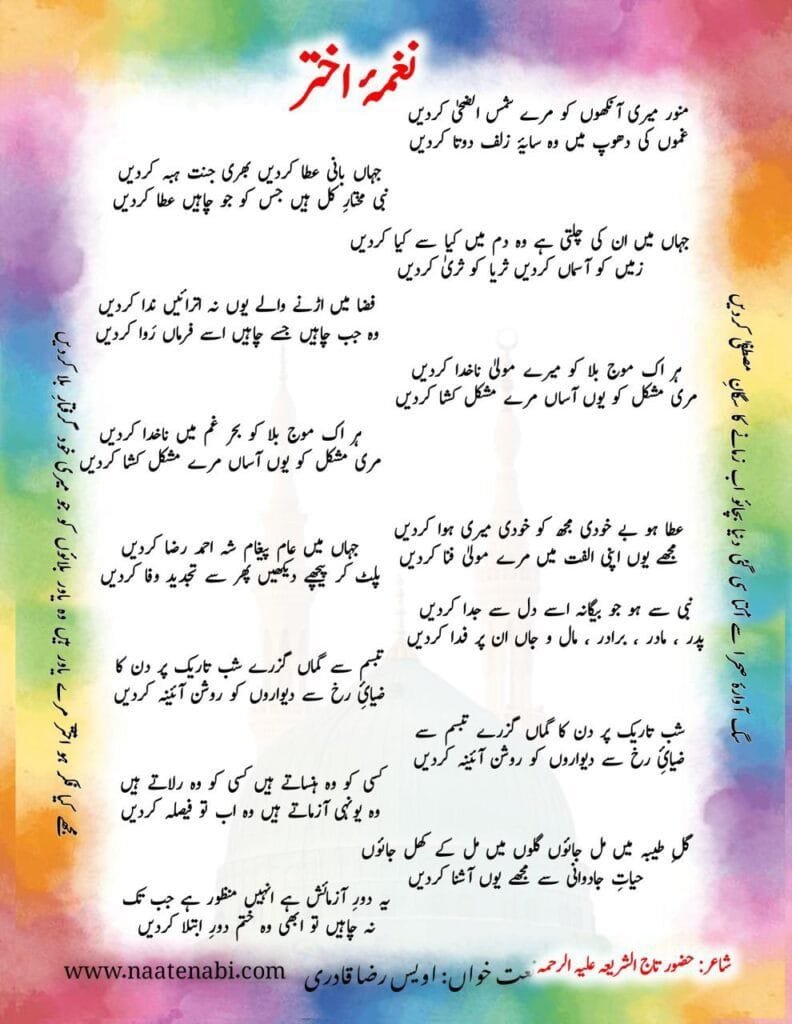 نغمۂ اختر
منور میری آنکھوں کو مرے شمس الضحیٰ کردیں
غموں کی دھوپ میں وہ سایۂ زلف دوتا کردیں
جہاں بانی عطا کردیں بھری جنت ہبہ کردیں
نبی مختارِ کل ہیں جس کو جو چاہیں عطا کردیں
جہاں میں ان کی چلتی ہے وہ دم میں کیا سے کیا کردیں
زمیں کو آسماں کردیں ثریا کو ثریٰ کردیں
فضا میں اڑنے والے یوں نہ اترائیں ندا کردیں
وہ جب چاہیں جسے چاہیں اسے فرماں رَوا کردیں
ہر اک موج بلا کو میرے مولیٰ ناخدا کردیں
مری مشکل کو یوں آساں مرے مشکل کشا کردیں
ہر اک موج بلا کو بحر غم میں ناخدا کردیں
مری مشکل کو یوں آساں مرے مشکل کشا کردیں
عطا ہو بے خودی مجھ کو خودی میری ہوا کردیں
مجھے یوں اپنی الفت میں مرے مولیٰ فنا کردیں
جہاں میں عام پیغام شہ احمد رضا کردیں
پلٹ کر پیچھے دیکھیں پھر سے تجدید وفا کردیں
نبی سے ہو جو بیگانہ اسے دل سے جدا کردیں
پدر ، مادر ، برادر ، مال و جاں ان پر فدا کردیں
تبسم سے گماں گزرے شب تاریک پر دن کا
ضیائِ رخ سے دیواروں کو روشن آئینہ کردیں
شب تاریک پر دن کا گماں گزرے تبسم سے
ضیائِ رخ سے دیواروں کو روشن آئینہ کردیں
کسی کو وہ ہنساتے ہیں کسی کو وہ رلاتے ہیں
وہ یونہی آزماتے ہیں وہ اب تو فیصلہ کردیں
گلِ طیبہ میں مل جائوں گلوں میں مل کے کھل جائوں
حیاتِ جاودانی سے مجھے یوں آشنا کردیں
یہ دورِ آزمائش ہے انہیں منظور ہے جب تک
نہ چاہیں تو ابھی وہ ختم دورِ ابتلا کردیں
سگ آوارۂ صحرا سے اکتا سی گئی دنیا بچائو اب زمانے کا سگانِ مصطفیٰ کردیں
مجھے کیا فکر ہو اخترؔ مرے یاور ہیں وہ یاور بلائوں کو جو میری خود گرفتارِ بلا کردیں
شاعر: حضور تاج الشریعہ علیہ الرحمہ
نعت خواں: اویس رضا قادری
www.naatenabi.com